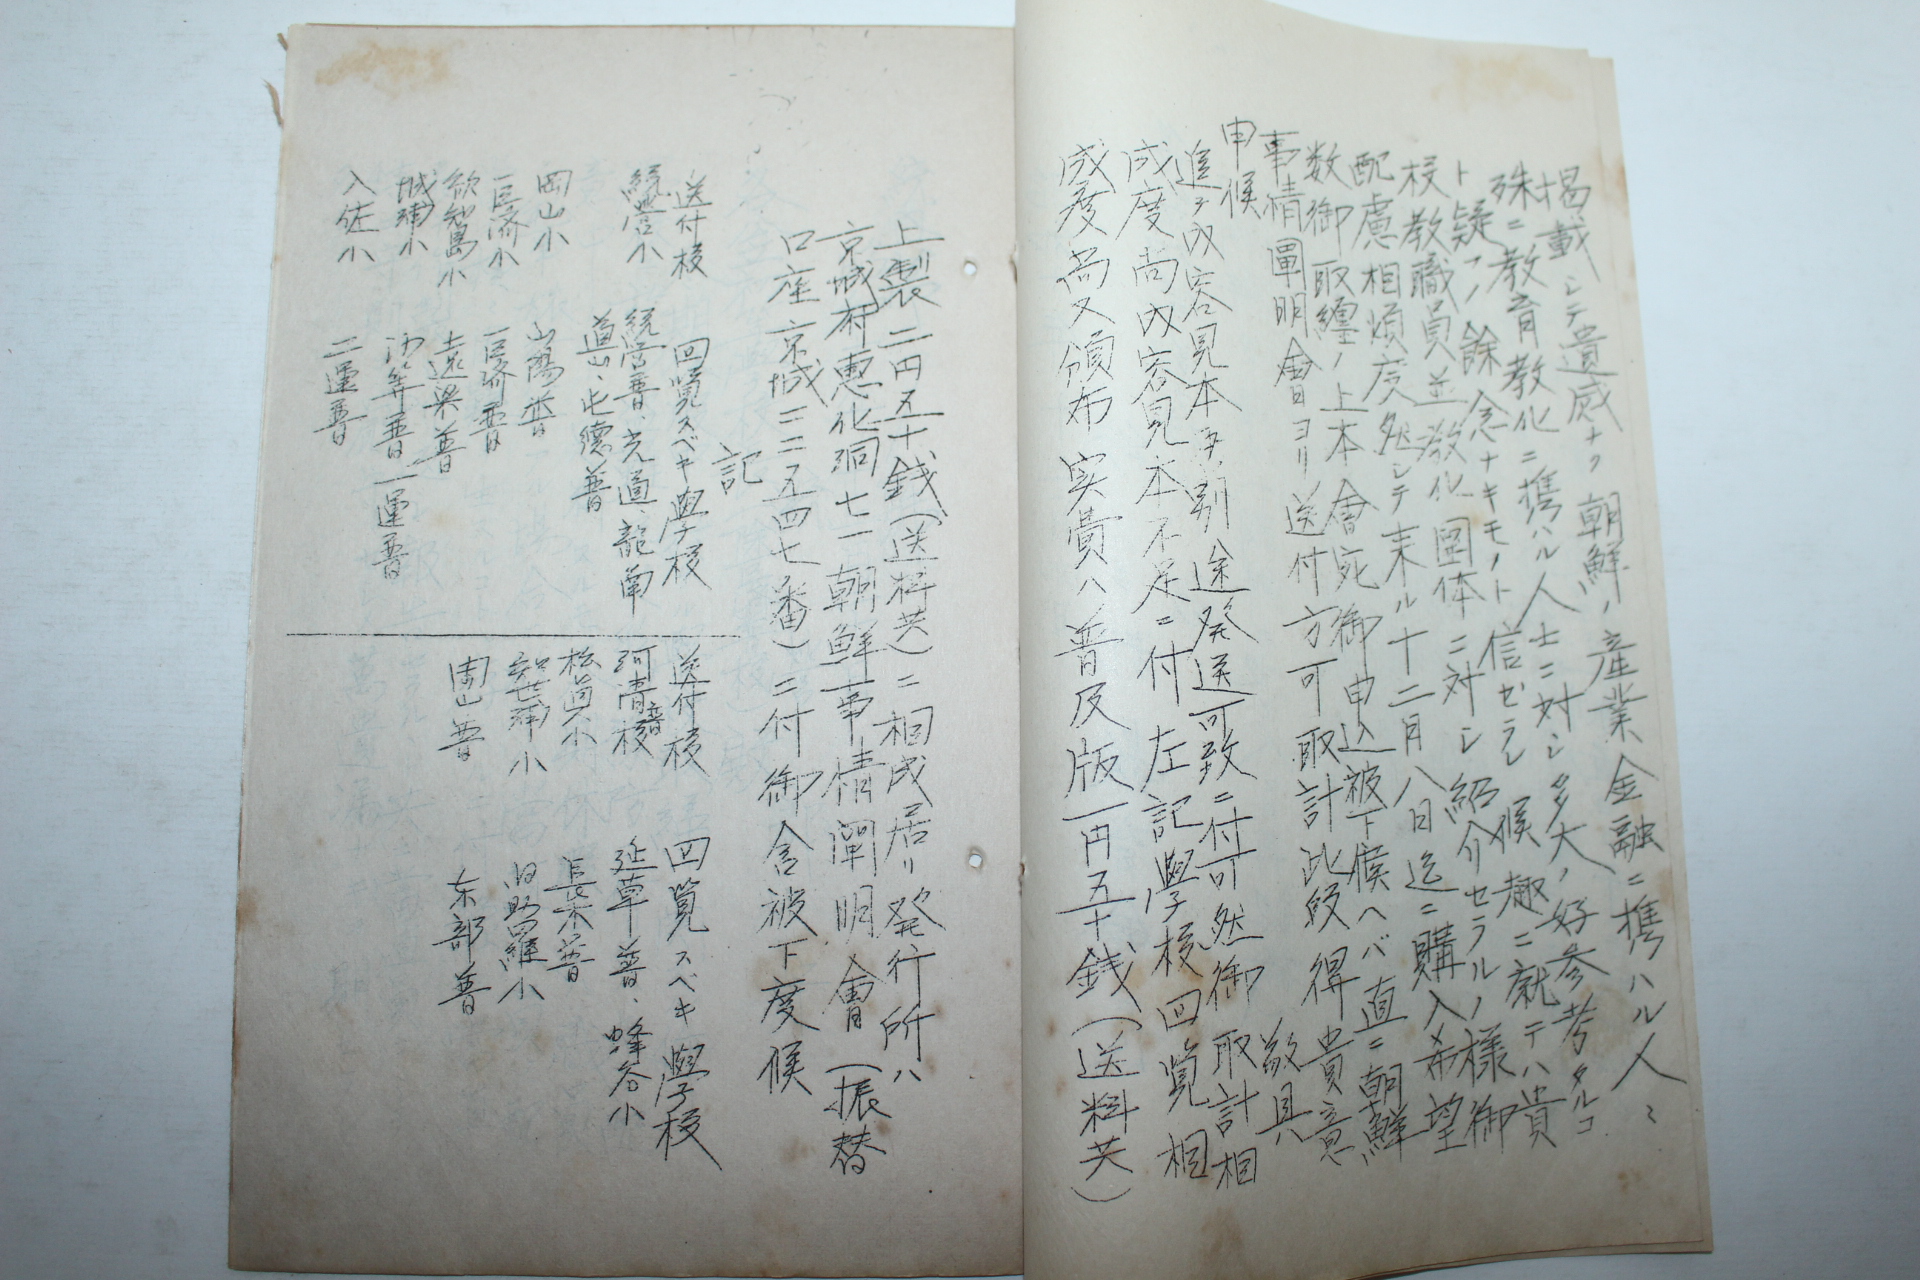 掲載シテ遺感ナク朝鮮ノ産業金融ニ携ハル人々
殊ニ教育教化ニ携ハル人士ニ対シ多大ノ好参考タルコ
ト疑フノ餘念ナキモノト信ゼラレ候趣ニ就テハ貴
校教職員並教化團体ニ対シ紹介セラルヽ様御
配慮相煩度然シテ来ル十二月八日迄ニ購入希望
数御取纒ノ上本會宛御申込被下候ヘバ直ニ朝鮮
事情闡明會ヨリ送付方可取計此段得貴意
申候 敬具
追テ内容見本別途発送可致ニ付可然御取計相
成度尚内容見本不足ニ付左記學校回覧相
成度尚又頒布実費ハ普及版一円五十銭(送料共)
上製二円五十銭(送料共)ニ相成居リ発行所ハ
京城府恵化洞七一朝鮮事情闡明會(振替
口座京城二二五四七番)ニ付御含被下度候
記
送付校 回覧スベキ學校
統営小 統営普、光道、龍南
道山、屯德普
岡山小 山陽普
巨済小 巨済普
欲知島小 遠梁普
城浦小 沙等普 一運普
入佐小 二運普
送付校 回覧スベキ學校
河清普校 延草普、蜂谷小
松真小 長木普
知世浦小 旧助羅小
閑山普 东部普